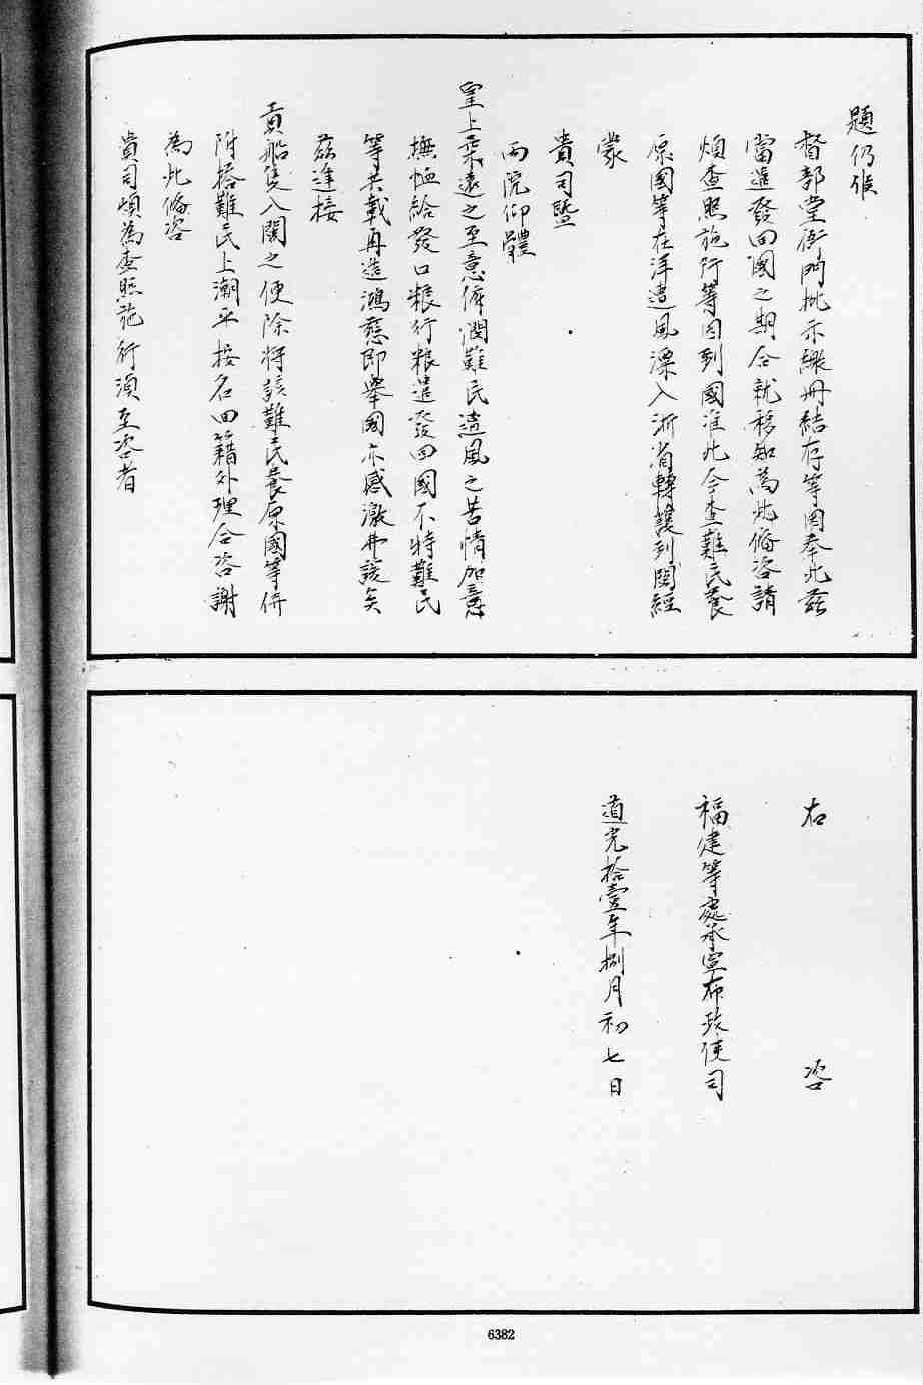 題仍候
督部堂衙門批示繳冊結存等因奉此茲
當遣發回國之期合就移知為此備咨請
煩查照施行等因到國准此今查難民養
原國等在洋遭風漂入浙省轉護到閩經
蒙
貴司暨
兩院仰體
皇上柔遠之至意俯憫難民遭風之苦情加意
撫恤給發口粮行粮遣發回國不特難民
等共戴再造鴻慈即舉國亦感激弗諼矣
茲逢接
貢船隻入閩之便除將該難民養原國等併
附搭難民上潮平按名回籍外理合咨謝
為此備咨
貴司煩為查照施行須至咨者
右咨
福建等處承宣布政使司
道光拾壹年捌月初七日
6382